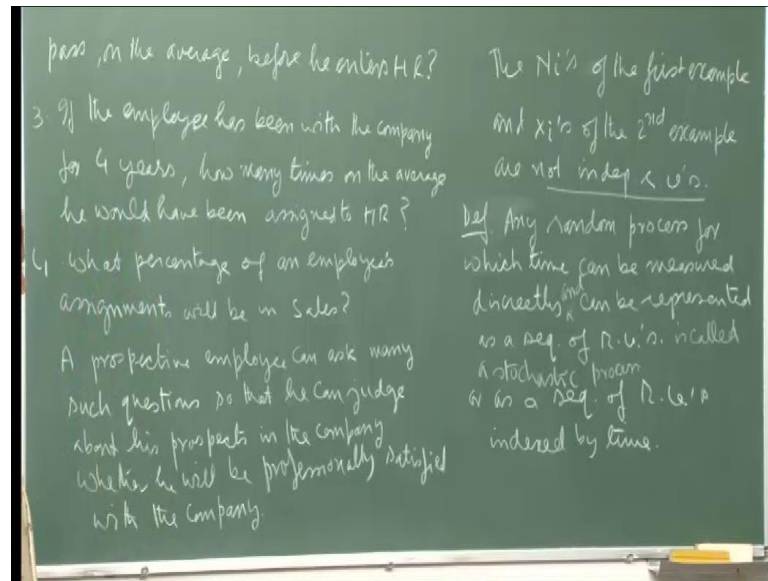 pass, on the average, before he enters HR?
3. If the employee has been with the company
for 4 years, how many times on the average
he would have been assigned to HR?
4. What percentage of an employee's
assignments will be in Sales?
A prospective employee can ask many
such questions so that he can judge
about his prospects in the company
whether he will be professionally satisfied
with the company.
The Ni's of the first example
and Xi's of the 2nd example
are not indep r.v's.
Def. Any random process for
which time can be measured
discretely and can be represented
as a seq. of R.v.'s. is called
a stochastic process
or as a seq. of R.v.'s
indexed by time.